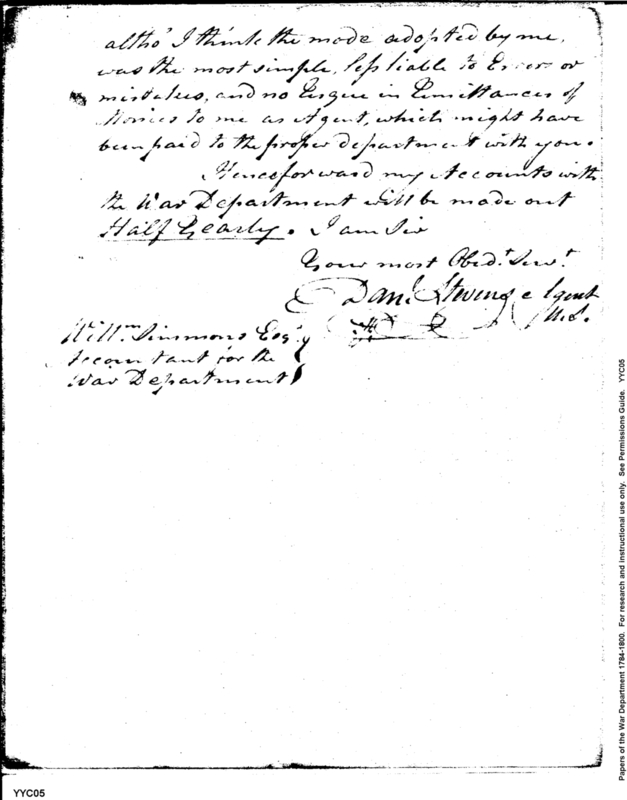 altho' I think the mode adopted by me,
was the most simple, less liable to Errors or
mistakes, and no in Remittances of
Monies to me as Agent, which might have
been paid to the proper department with you.
Henceforward my Accounts with
the War Department will be made out
Half Yearly. I am Sir
Your most Obedt. Servt.
Danl. Stevens Agent
U.S.
Willm. Simmons Esqr.
Accountant for the
War Department
YYC05
Papers of the War Department 1784-1800. For research and instructional use only. See Permissions Guide. YYC05